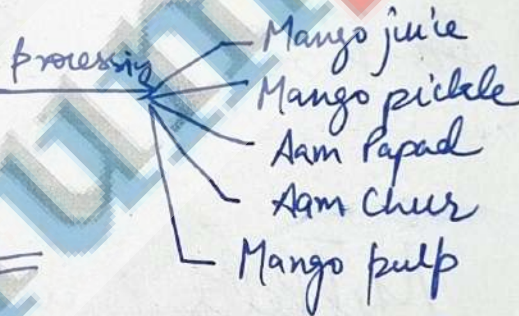 Processing
Mango juice
Mango pickle
Aam Papad
Aam Chur
Mango pulp